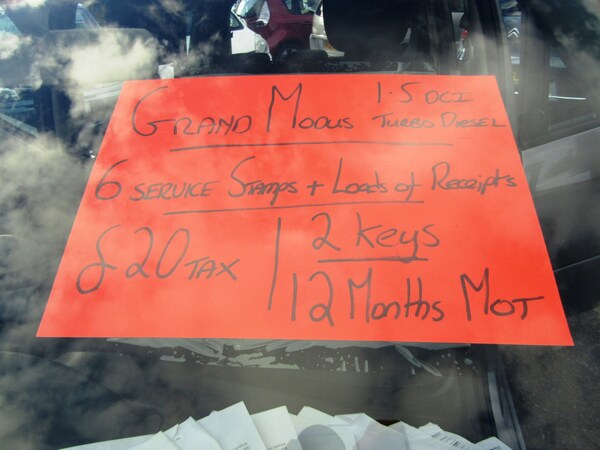 GRAND MODUS 1.5 DCI
TURBO DIESEL
6 SERVICE STAMPS + Loads of Receipts
£20 TAX
2 keys
12 Months MOT